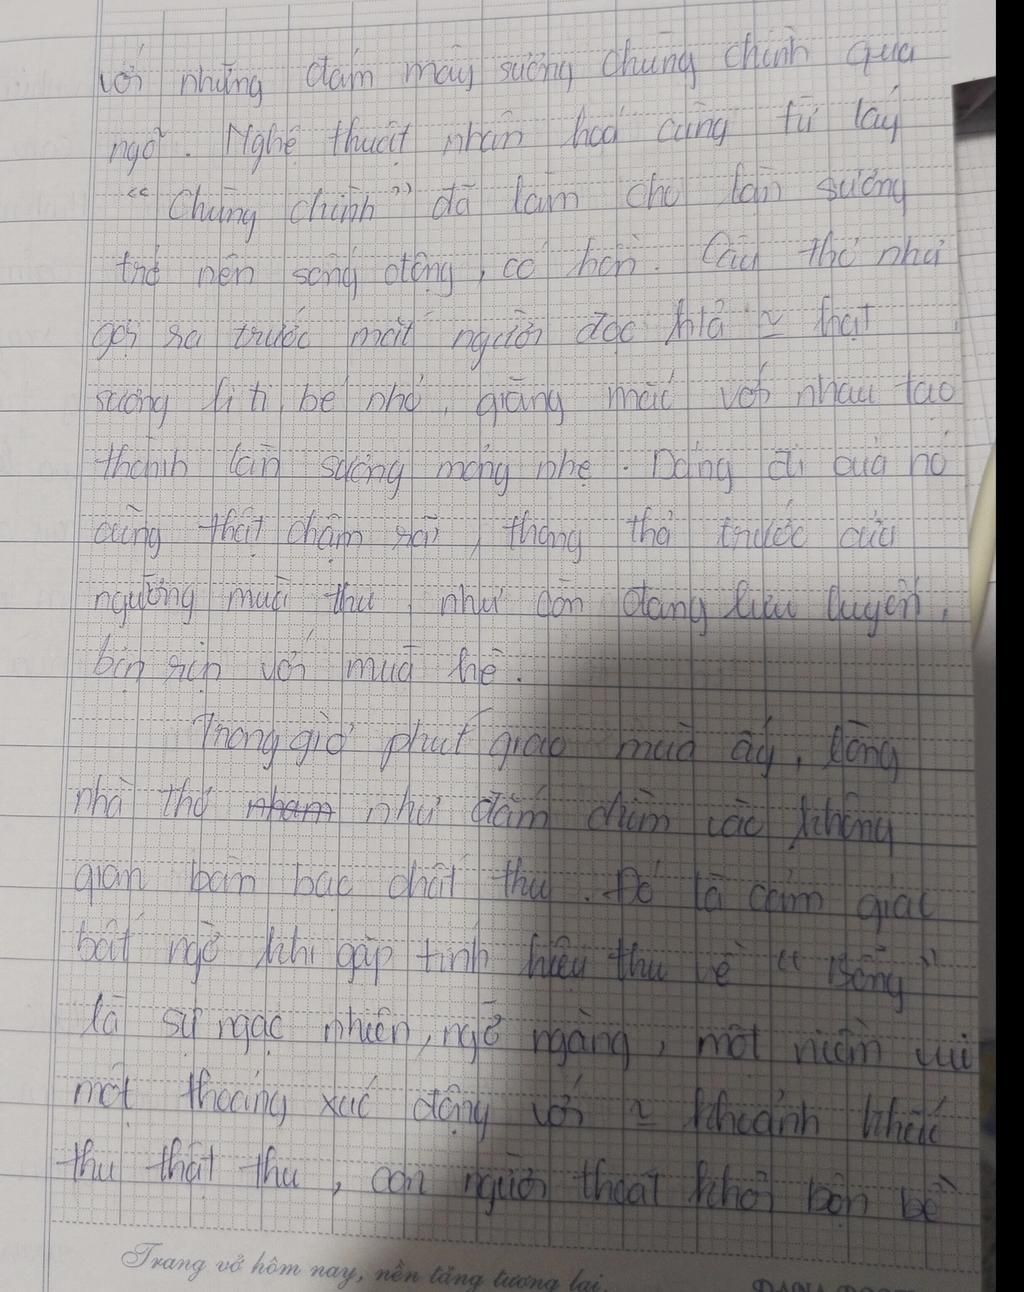 với những đám mây sương chùng chình qua
ngõ. Nghệ thuật nhân hoá cùng từ láy
“Chùng chình” đã làm cho làn sương
trở nên sống động, có hồn. Câu thơ như
gợi ra trước mắt người đọc ~ hạt
sương li ti, bé nhỏ, giăng mắc với nhau tạo
thành làn sương mỏng nhẹ. Dáng đi của nó
cũng thật chậm rãi, thong thả trước cửa
ngưỡng mùa thu, như còn đang lưu luyến,
bịn rịn với mùa hè.
Trong giờ phút giao mùa ấy, lòng
nhà thơ nham như đắm chìm vào không
gian bàn bạc chất thu. Đó là cảm giác
bất ngờ khi gặp tính hiệu thu về “Bỗng”
là sự ngạc nhiên, ngỡ ngàng, một niềm vui
một thoáng xúc động với ~ khoảnh khắc
thu thật thu, con người thoát khỏi bộn bề
Trang vở hôm nay, nền tảng tương lai.